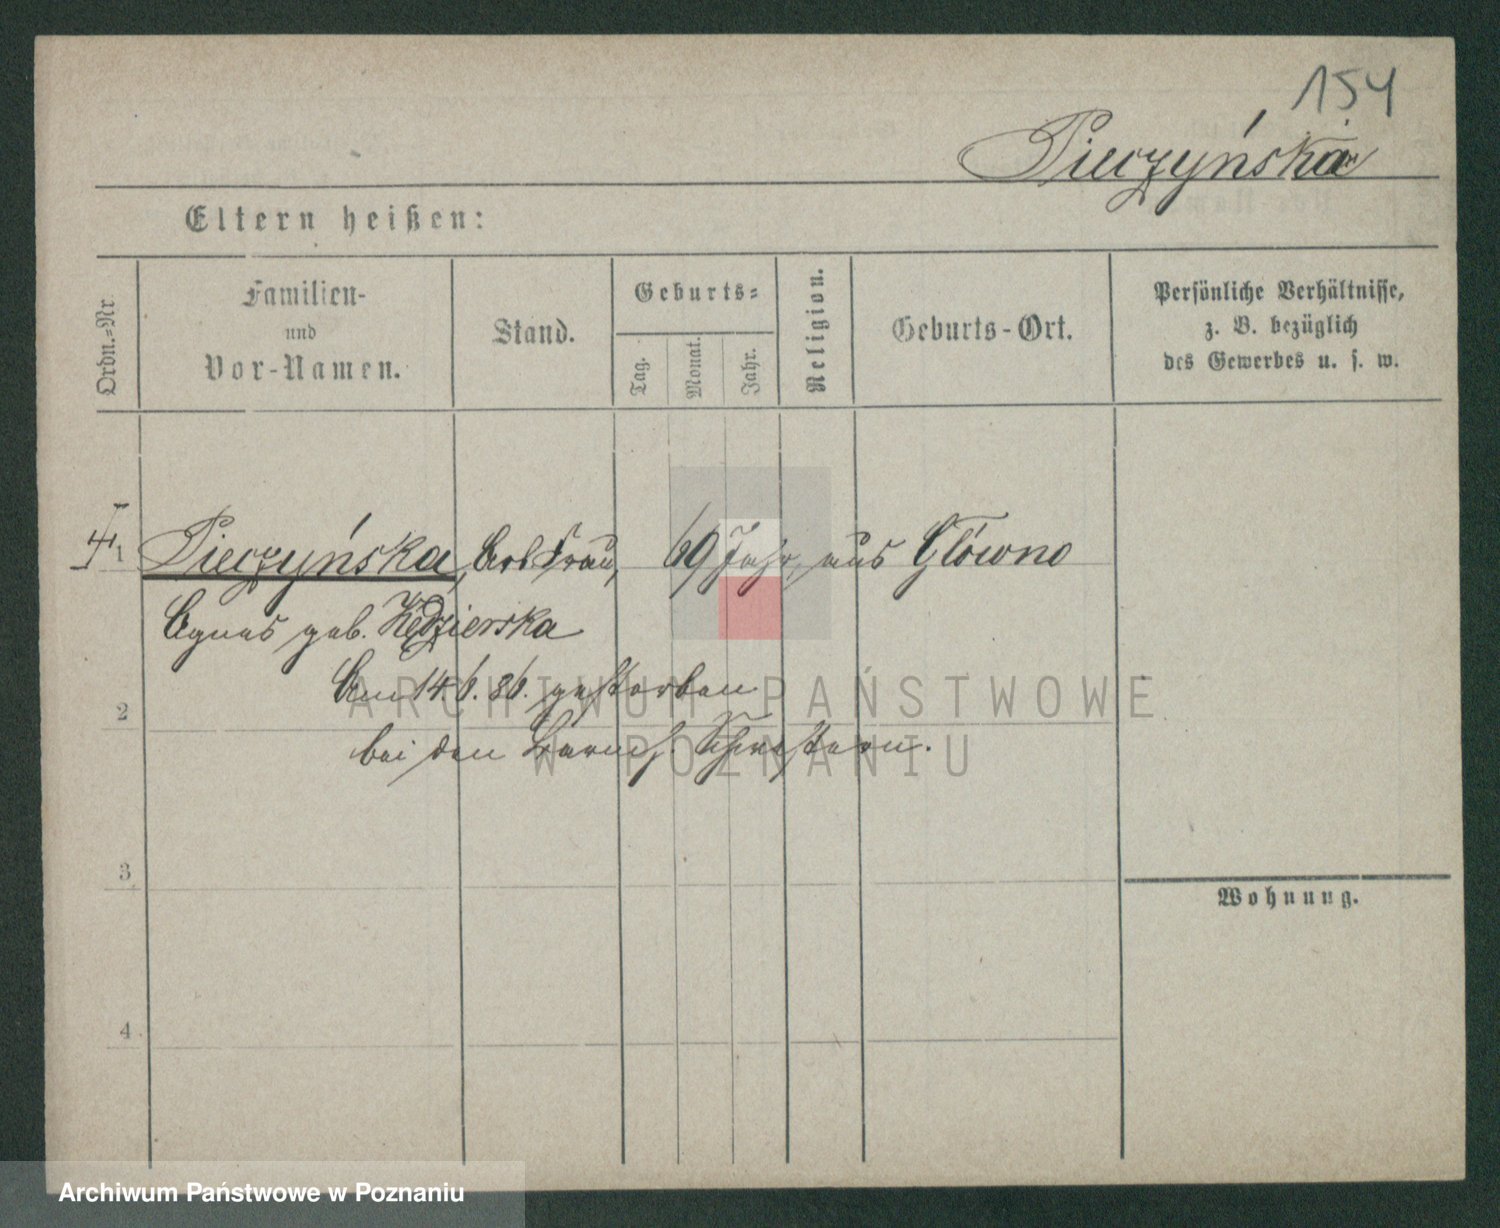 154
Pieczyńska
Eltern heißen:
Ordn.=Nr
Familien-
und
Vor-Namen.
Stand.
Geburts=
Tag.
Monat.
Jahr.
Religion.
Geburts-Ort.
Persönliche Verhältnisse,
z. B. bezüglich
des Gewerbes u. s. w.
1 Pieczyńska, Arb Frau, 69 Jahr, aus Główno
Agnes geb. Kędzierska
Am 14.6.86. gestorben
2
bei den barmh. Schwestern.
3
Wohnung.
4
ARCHIWUM PAŃSTWOWE
W POZNANIU
Archiwum Państwowe w Poznaniu